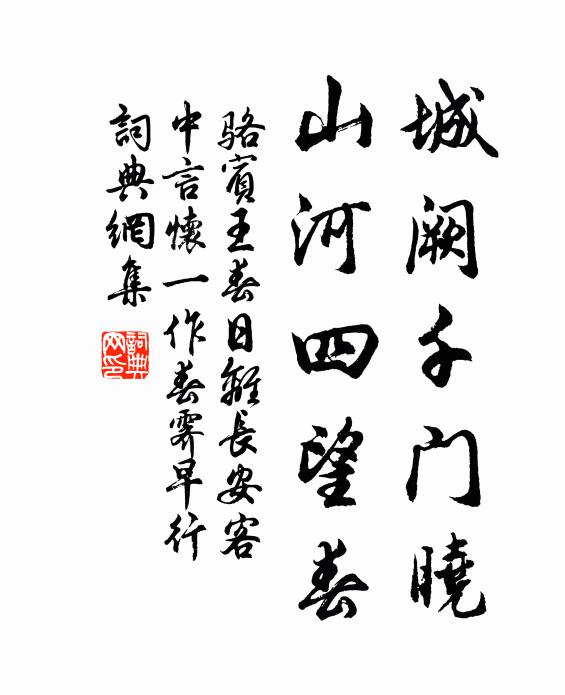 城阙千门曉
山河四望春
骆賓王春日離長安客
中言懷一作春霽早行
詞典網集
詞典
网印